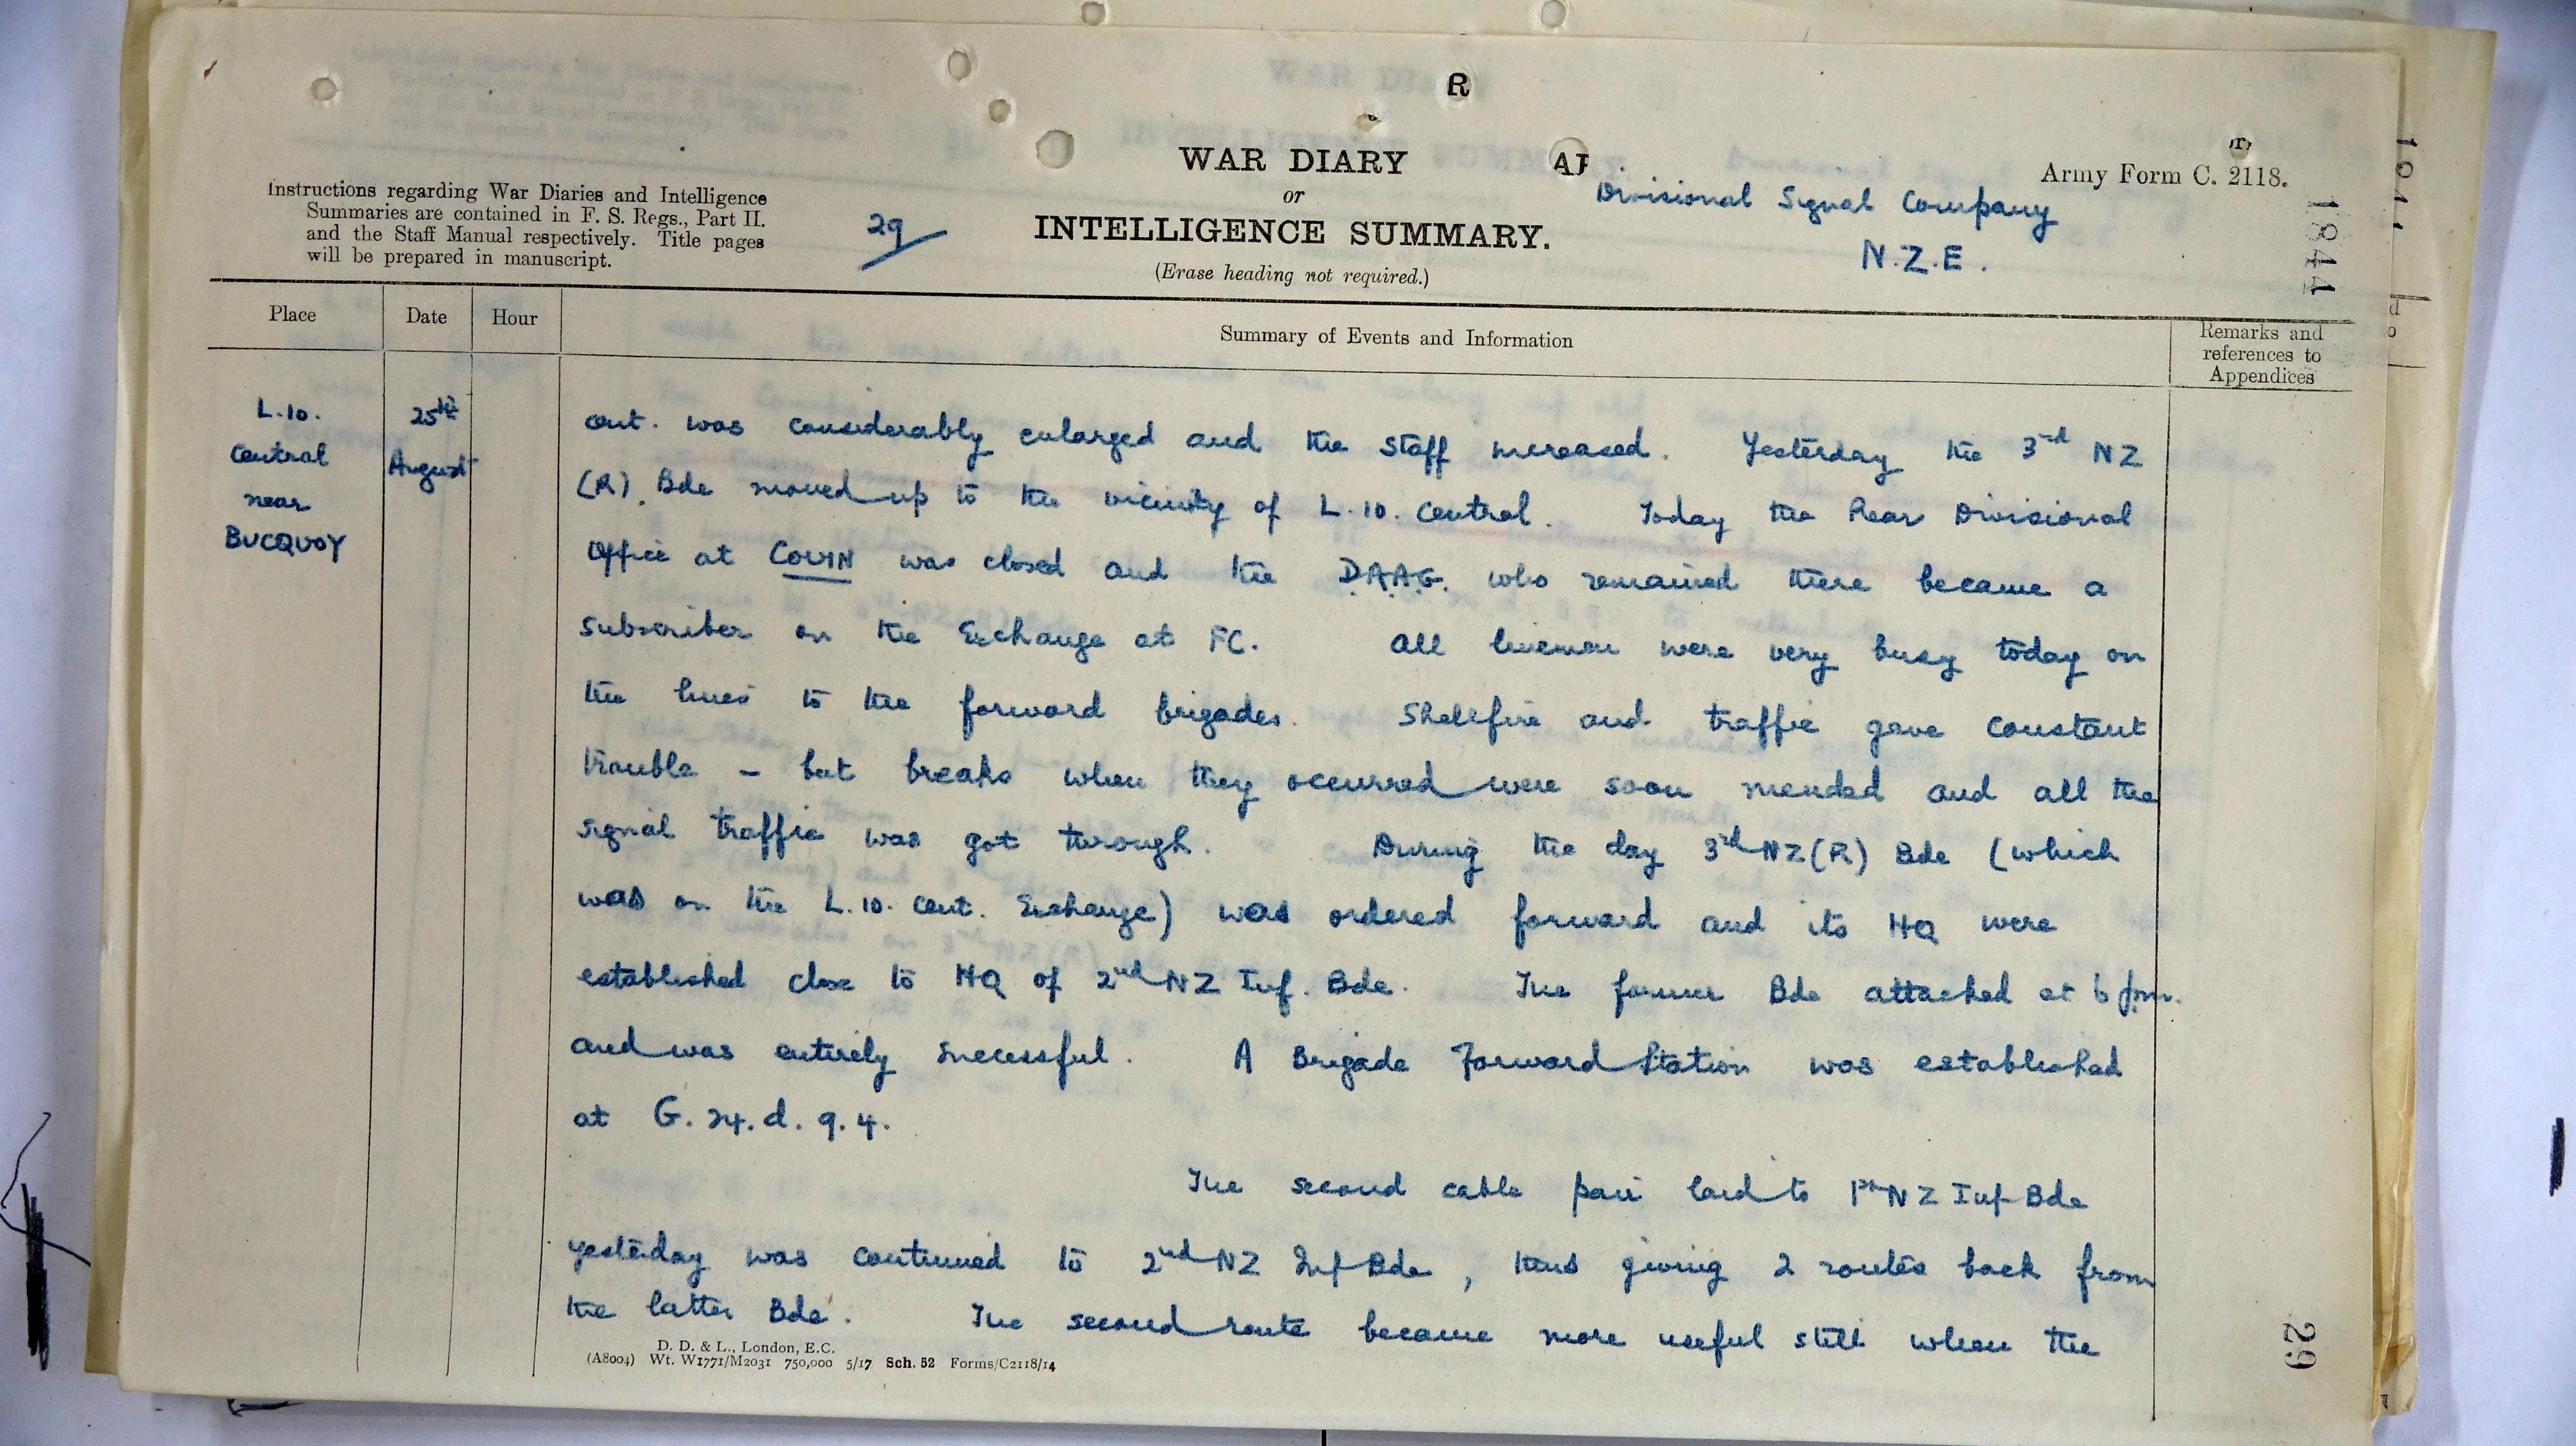 R
WAR DIARY
or
INTELLIGENCE SUMMARY.
(Erase heading not required.)
Instructions regarding War Diaries and Intelligence
Summaries are contained in F. S. Regs., Part II.
and the Staff Manual respectively. Title pages
will be prepared in manuscript.
29
Army Form C. 2118.
Divisional Signal Company
N.Z.E.
1844
Place
Date
Hour
Summary of Events and Information
Remarks and
references to
Appendices
L.10.
Central
near
BUCQUOY
25th
August
cent. was considerably enlarged and the staff increased. Yesterday the 3rd NZ
(R). Bde moved up to the vicinity of L.10. Central. Today the Rear Divisional
Office at COUIN was closed and the D.A.A.G. who remained there became a
subscriber on the Exchange at FC. All linemen were very busy today on
the lines to the forward brigades. Shellfire and traffic gave constant
trouble – but breaks when they ocurred were soon mended and all the
signal traffic was got through. During the day 3rd NZ(R) Bde (which
was on the L.10. cent. Exchange) was ordered forward and its HQ were
established close to HQ of 2nd NZ Inf. Bde. The former Bde attacked at 6 pm.
and was entirely successful. A Brigade Forward Station was established
at G.24.d.9.4.
The second cable pair laid to 1st NZ Inf Bde
yesterday was continued to 2nd NZ Inf Bde, thus giving 2 routes back from
the latter Bde. The second route became more useful still when the
D. D. & L., London, E.C.
(A8004) Wt. W1771/M2031 750,000 5/17 Sch. 52 Forms/C2118/14
29